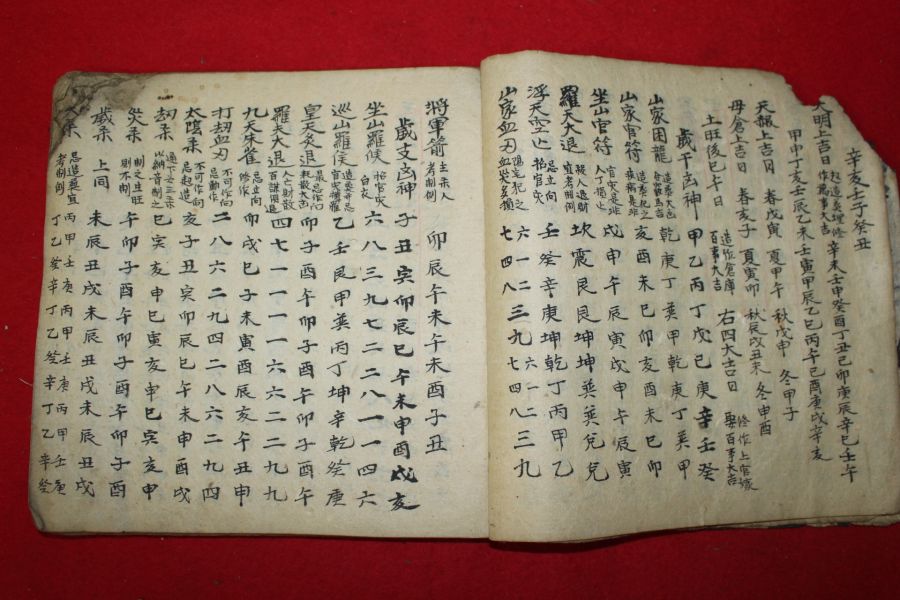 辛亥壬子癸丑
大明上吉日 起造葬埋修作萬事大吉 辛未壬申癸酉丁丑己卯庚辰辛巳壬午
甲申丁亥壬辰乙未壬寅甲辰乙巳丙午己酉庚戌辛亥
天赦上吉日 春戊寅 夏甲午 秋戊申 冬甲子
母倉上吉日 春亥子 夏寅卯 秋辰戌丑未 冬申酉
土旺後巳午日 造作倉庫百事大吉 右四大吉日 修作上官嫁娶百事大吉
歲干凶神 甲乙丙丁戊己庚辛壬癸
山家困龍 乾庚丁巽甲乾庚丁巽甲
山家官符 亥酉未巳卯亥酉未巳卯
坐山官符 戌申午辰寅戌申午辰寅
羅天大退 坎震艮艮坤坤巽巽兌兌
浮天空亡 忌立向 壬癸辛庚坤乾丁丙甲乙
山家血刃
將軍箭 主杀人考制例 卯辰午未午未酉子丑
歲支凶神 子丑寅卯辰巳午未申酉戌亥
坐山羅候 六八三九七二二八一一四六
巡山羅候 乙壬艮甲巽丙丁坤辛乾癸庚
皇天灸退 卯子酉午卯子酉午卯子酉午
羅天大退 四七一一一一六六二二九九
九天朱雀 忌立向修作 卯戌巳子未寅酉辰亥午丑申
打刧血刃 不可作向忌動作 二八六二九四二八六二九四
太陰杀 不可作向忌起造 亥子丑寅卯辰巳午未申酉戌
刧杀 巳寅亥申巳寅亥申巳寅亥申
灾杀 制之生旺則不制 午卯子酉午卯子酉午卯子酉
歲杀 上同 未辰丑戌未辰丑戌未辰丑戌
忌造葬宜考制例 丙甲壬庚丙甲壬庚丙甲壬庚
丁乙癸辛丁乙癸辛丁乙辛癸